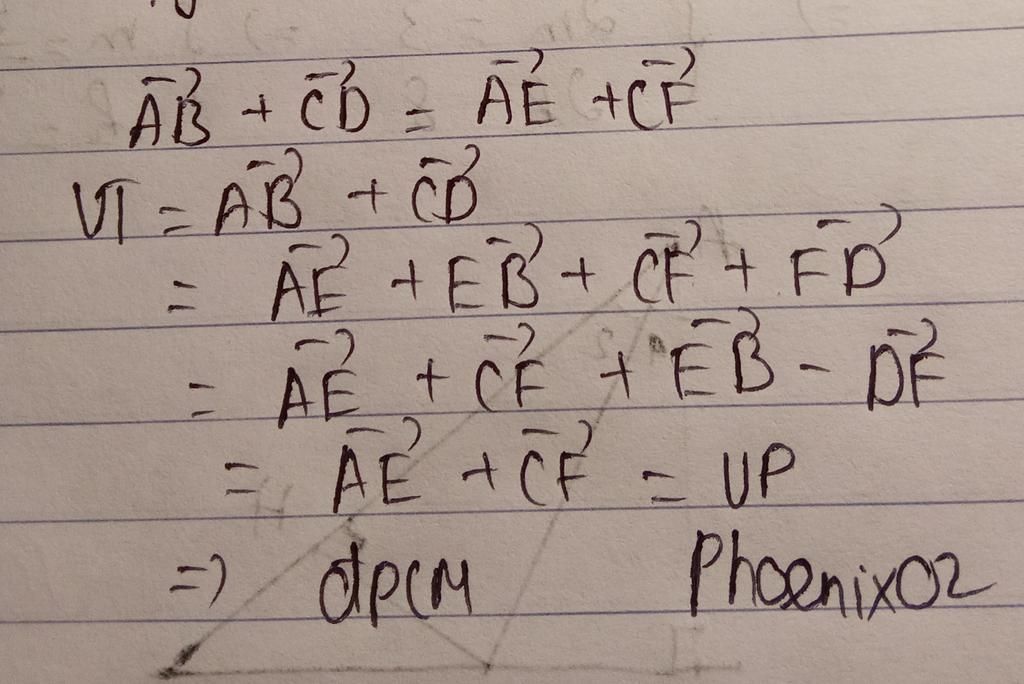 AB⃗ + CD⃗ = AE⃗ + CF⃗
VT = AB⃗ + CD⃗
= AE⃗ + EB⃗ + CF⃗ + FD⃗
= AE⃗ + CF⃗ + EB⃗ - DF⃗
= AE⃗ + CF⃗ = VP
=> dpcm Phoenix02